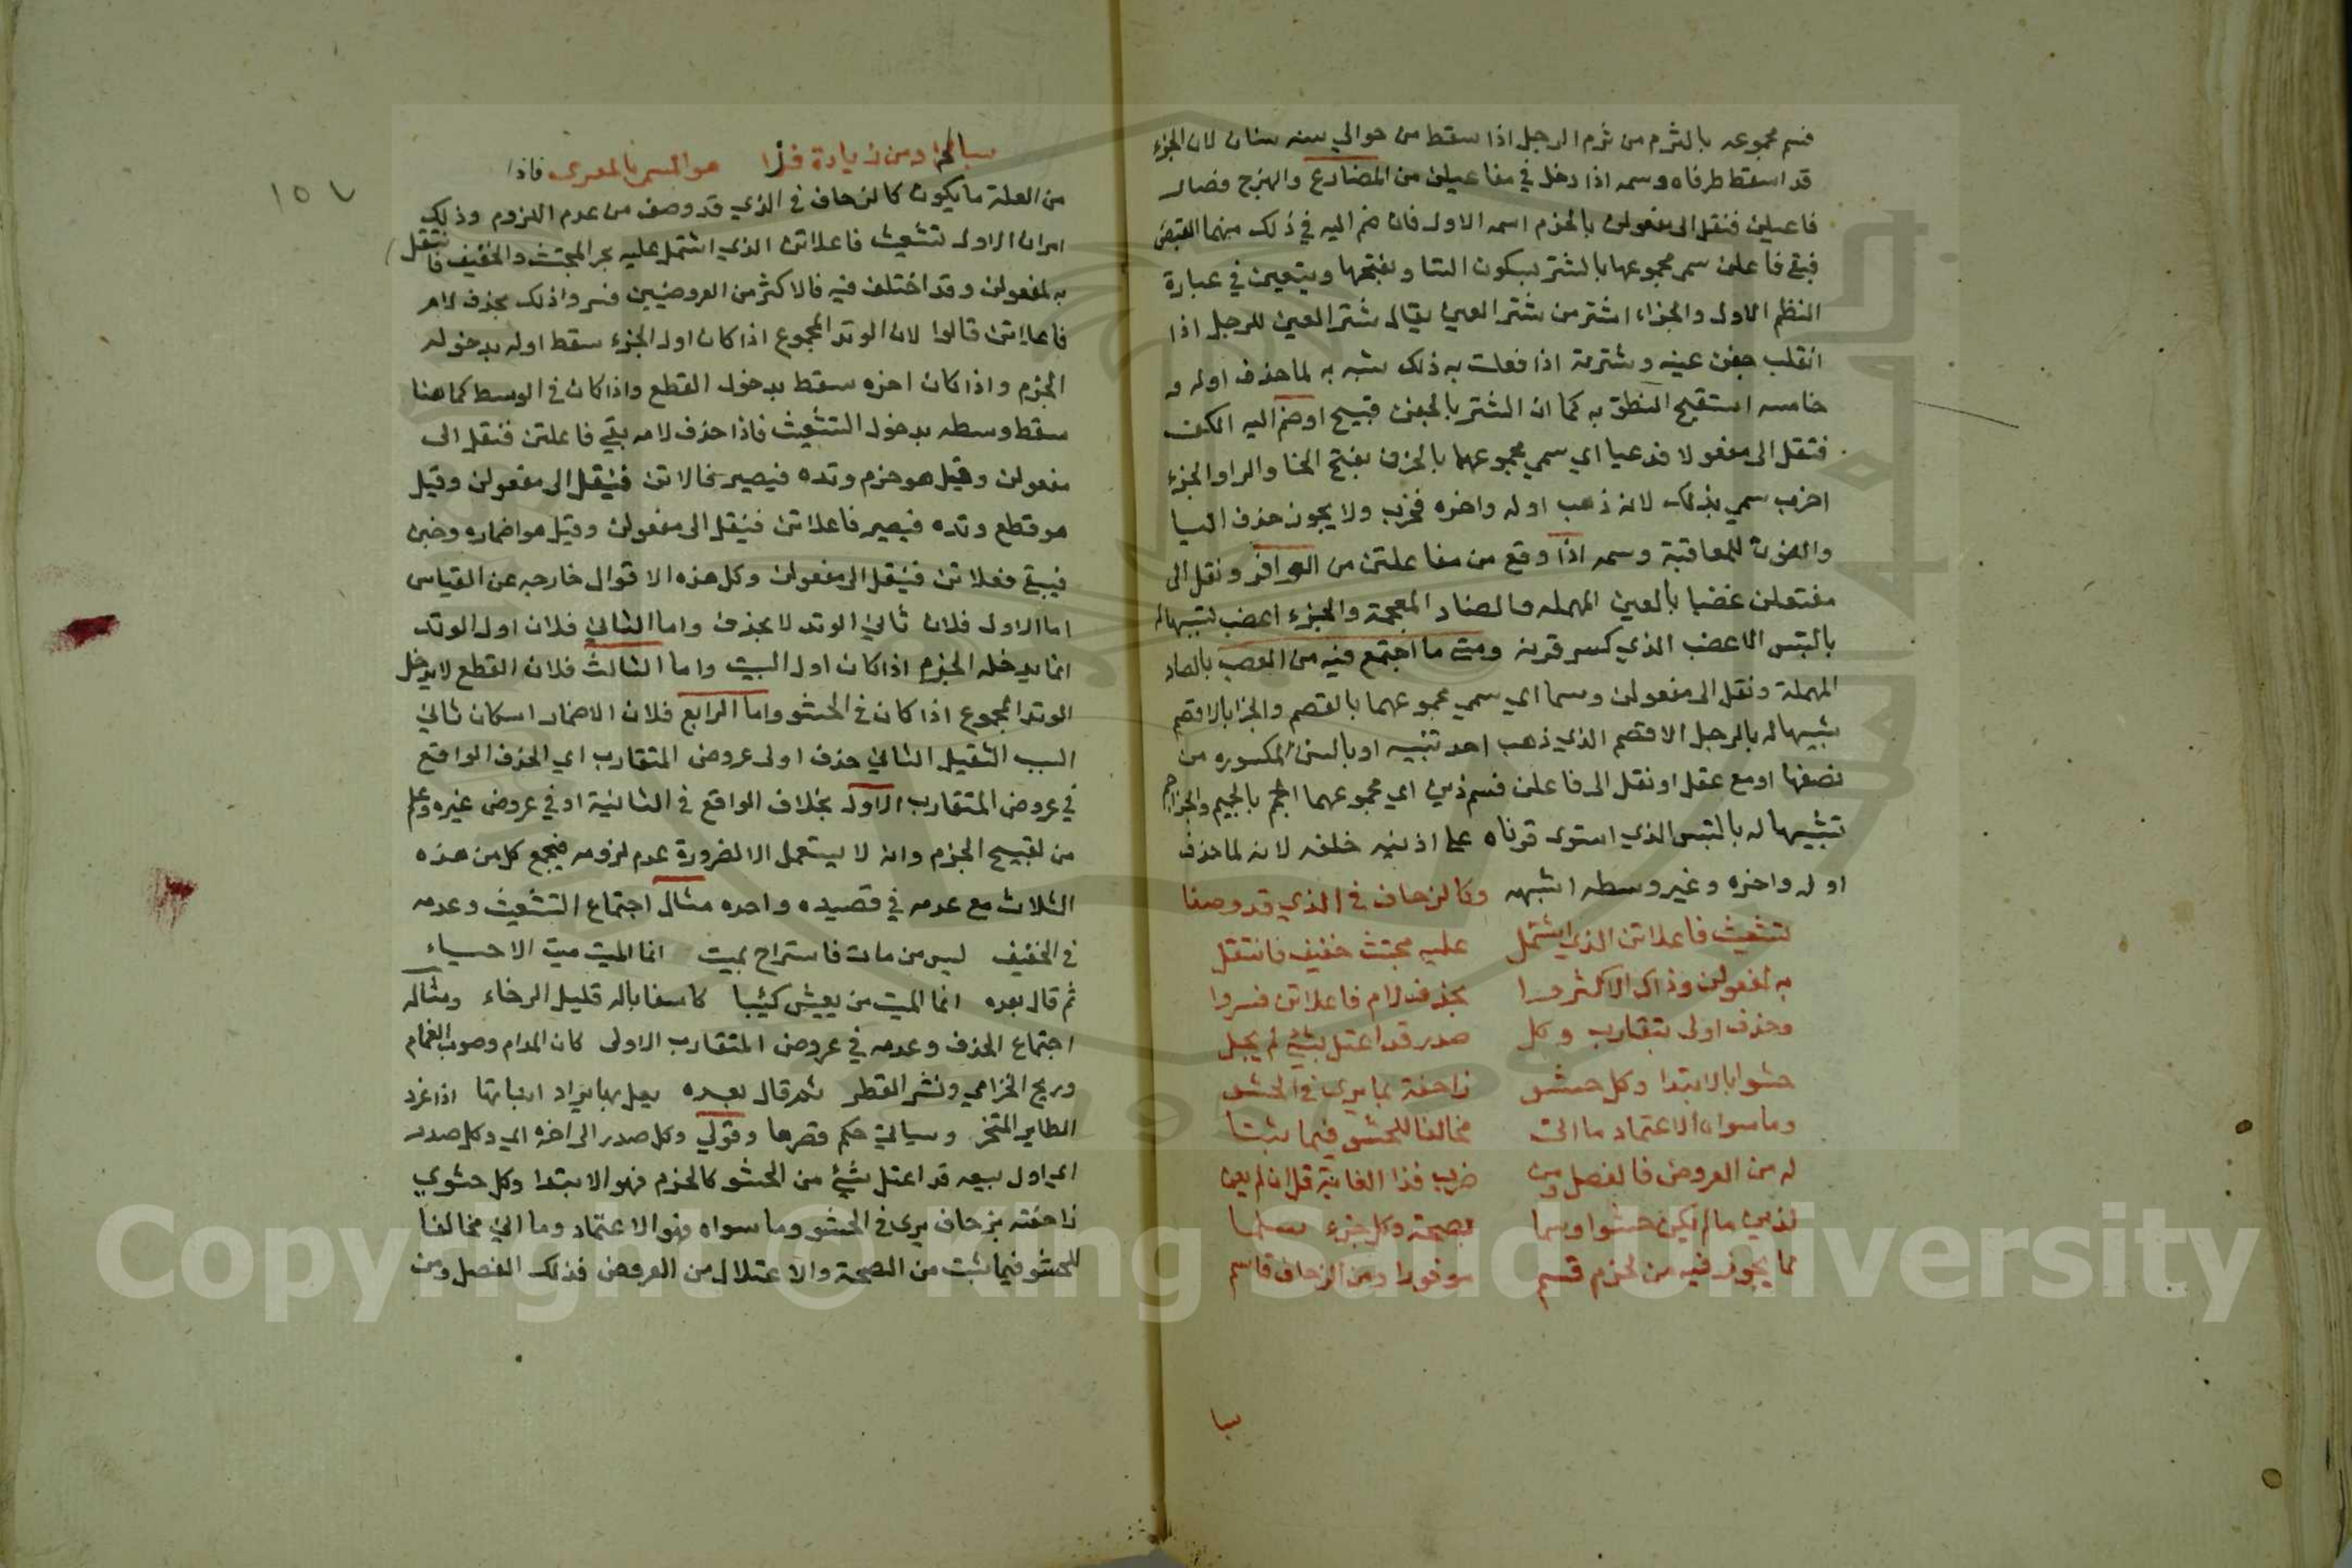 فسم مجموعه بالثرم من ثرم الرجل اذا سقط من حوالي سنه سنان لان الجزء
قد اسقط طرفاه وسمه اذا دخل في مفاعيلن من المضارع والهزج فصار
فاعيلن فنقل الى مفعولن بالخرم اسمه الاول فان ضم اليه في ذلك منهما القبض
فبقي فاعلن سم مجموعهما بالشتر بسكون التا وبفتحها ويتعين في عبارة
النظم الاول والجزء اشتر من شتر العين يقال شتر العين للرجل اذا
انقلب جفن عينه وشترته اذا فعلت به ذلك شبه به لما حذف اوله و
خامسه استقبح النطق به كما ان الشتر بالجفن قبيح او ضم اليه الكف
فنقل الى مفعولا فدعيا اي سمي مجموعهما بالخرب بفتح الخا والرا والجزء
اخرب سمي بذلك لانه ذهب اوله واخره فخرب ولا يجوز حذف اليا
والنون للمعاقبة وسمه اذا وقع من مفاعلتن من الوافر ونقل الى
مفتعلن عضبا بالعين المهمله والضاد المعجمة والجزء اعضب تشبيها له
بالتيس الاعضب الذي كسر قرنه ومتى ما اجتمع فيه من العصب بالصاد
المهملة ونقل الى مفعولن وسما اي سمي مجموعهما بالقصم والجزا بالاقصم
تشبيها له بالرجل الاقصم الذي ذهب احد ثنييه او بالسن المكسوره من
نصفها او مع عقل او نقل الى فاعلن فسم ذين اي مجموعهما اجم بالجيم والجزا جم
تشبيها له بالتيس الذي استوى قرناه على اذنيه خلفه لانه لما حذف
اوله واخره وغير وسطه اشبهه وكالزحاف في الذي قد وصفا
تشعيث فاعلاتن الذي اشتمل عليه مجتث خفيف فانتقل
به لمفعولن وذاك الاكثر بحذف لام فاعلاتن فسروا
وحذف اولى بتقارب وكل صدر قد اعتل بشئ لم يحل
حشوا بالابتدا وكل حشو زاحفة بما يرى في الحشو
وما سواه الاعتماد ما اتى مخالفا للحشو فيما ثبتا
له من العروض فالفصل ومن ضرب فذا الغاية قل ان لم يعن
لذين ما لم يكن حشوا وسما بصحة وكل جزء سلما
مما يجوز فيه من خرم قسم موفورا ومن الزحاف قاسم
سا
١٥٧
سالما ومن زيادة هو المسمى بالمعرى فاذا
من العلة ما يكون كالزحاف في الذي قد وصف من عدم اللزوم وذلك
امران الاول تشعيث فاعلاتن الذي اشتمل عليه بحر المجتث والخفيف فانتقل
به لمفعولن وقد اختلف فيه فالاكثر من العروضيين فسروا ذلك بحذف لام
فاعلاتن قالوا لان الوتد المجموع اذا كان اول الجزء سقط اوله بدخوله
الخرم واذا كان اخره سقط بدخول القطع واذا كان في الوسط كما هنا
سقط وسطه بدخول التشعيث فاذا حذف لامه بقي فاعاتن فنقل الى
مفعولن وقيل هو خرم وتده فيصير فالاتن فينقل الى مفعولن وقيل
هو قطع وتده فيصير فاعلاتن فينقل الى مفعولن وقيل هو اضماره وخبن
فيبقى فعلاتن فينقل الى مفعولن وكل هذه الاقوال خارجه عن القياس
اما الاول فلان ثاني الوتد لا يحذف واما الثاني فلان اول الوتد
انما يدخله الخرم اذا كان اول البيت واما الثالث فلان القطع لا يدخل
الوتد المجموع اذا كان في الحشو واما الرابع فلان الاضمار اسكان ثاني
السبب الثقيل الثاني حذف اولى عروض المتقارب اي الحذف الواقع
في عروض المتقارب الاولى بخلاف الواقع في الثانية او في عروض غيره وعلم
من تقبيح الخرم وانه لا يستعمل الا لضرورة عدم لزومه فيجمع كل من هذه
الثلاث مع عدمه في قصيده واحده مثال اجتماع التشعيث وعدمه
في الخفيف ليس من مات فاستراح بميت انما الميت ميت الاحساء
ثم قال بعده انما الميت من يعيش كئيبا كاسفا باله قليل الرخاء ومثاله
اجتماع الحذف وعدمه في عروض المتقارب الاولى كان المدام وصوب الغمام
وريح الخزامي ونشر القطر ثم قال بعده يعل بها برد انيابها اذا غرد
الطاير المستحر وسيأتي حكم قصرها وقولي وكل صدر الى اخره اي وكل صدر
اي اول بيت قد اعتل بشئ من الحشو كالخرم فهو الابتدا وكل حشوي
زاحفته بزحاف يرى في الحشو وما سواه فهو الاعتماد وما اتى مخالفا
للحشو فيما ثبت من الصحة والاعتلال من العروض فذلك الفصل ومن
Copyright © King Saud University